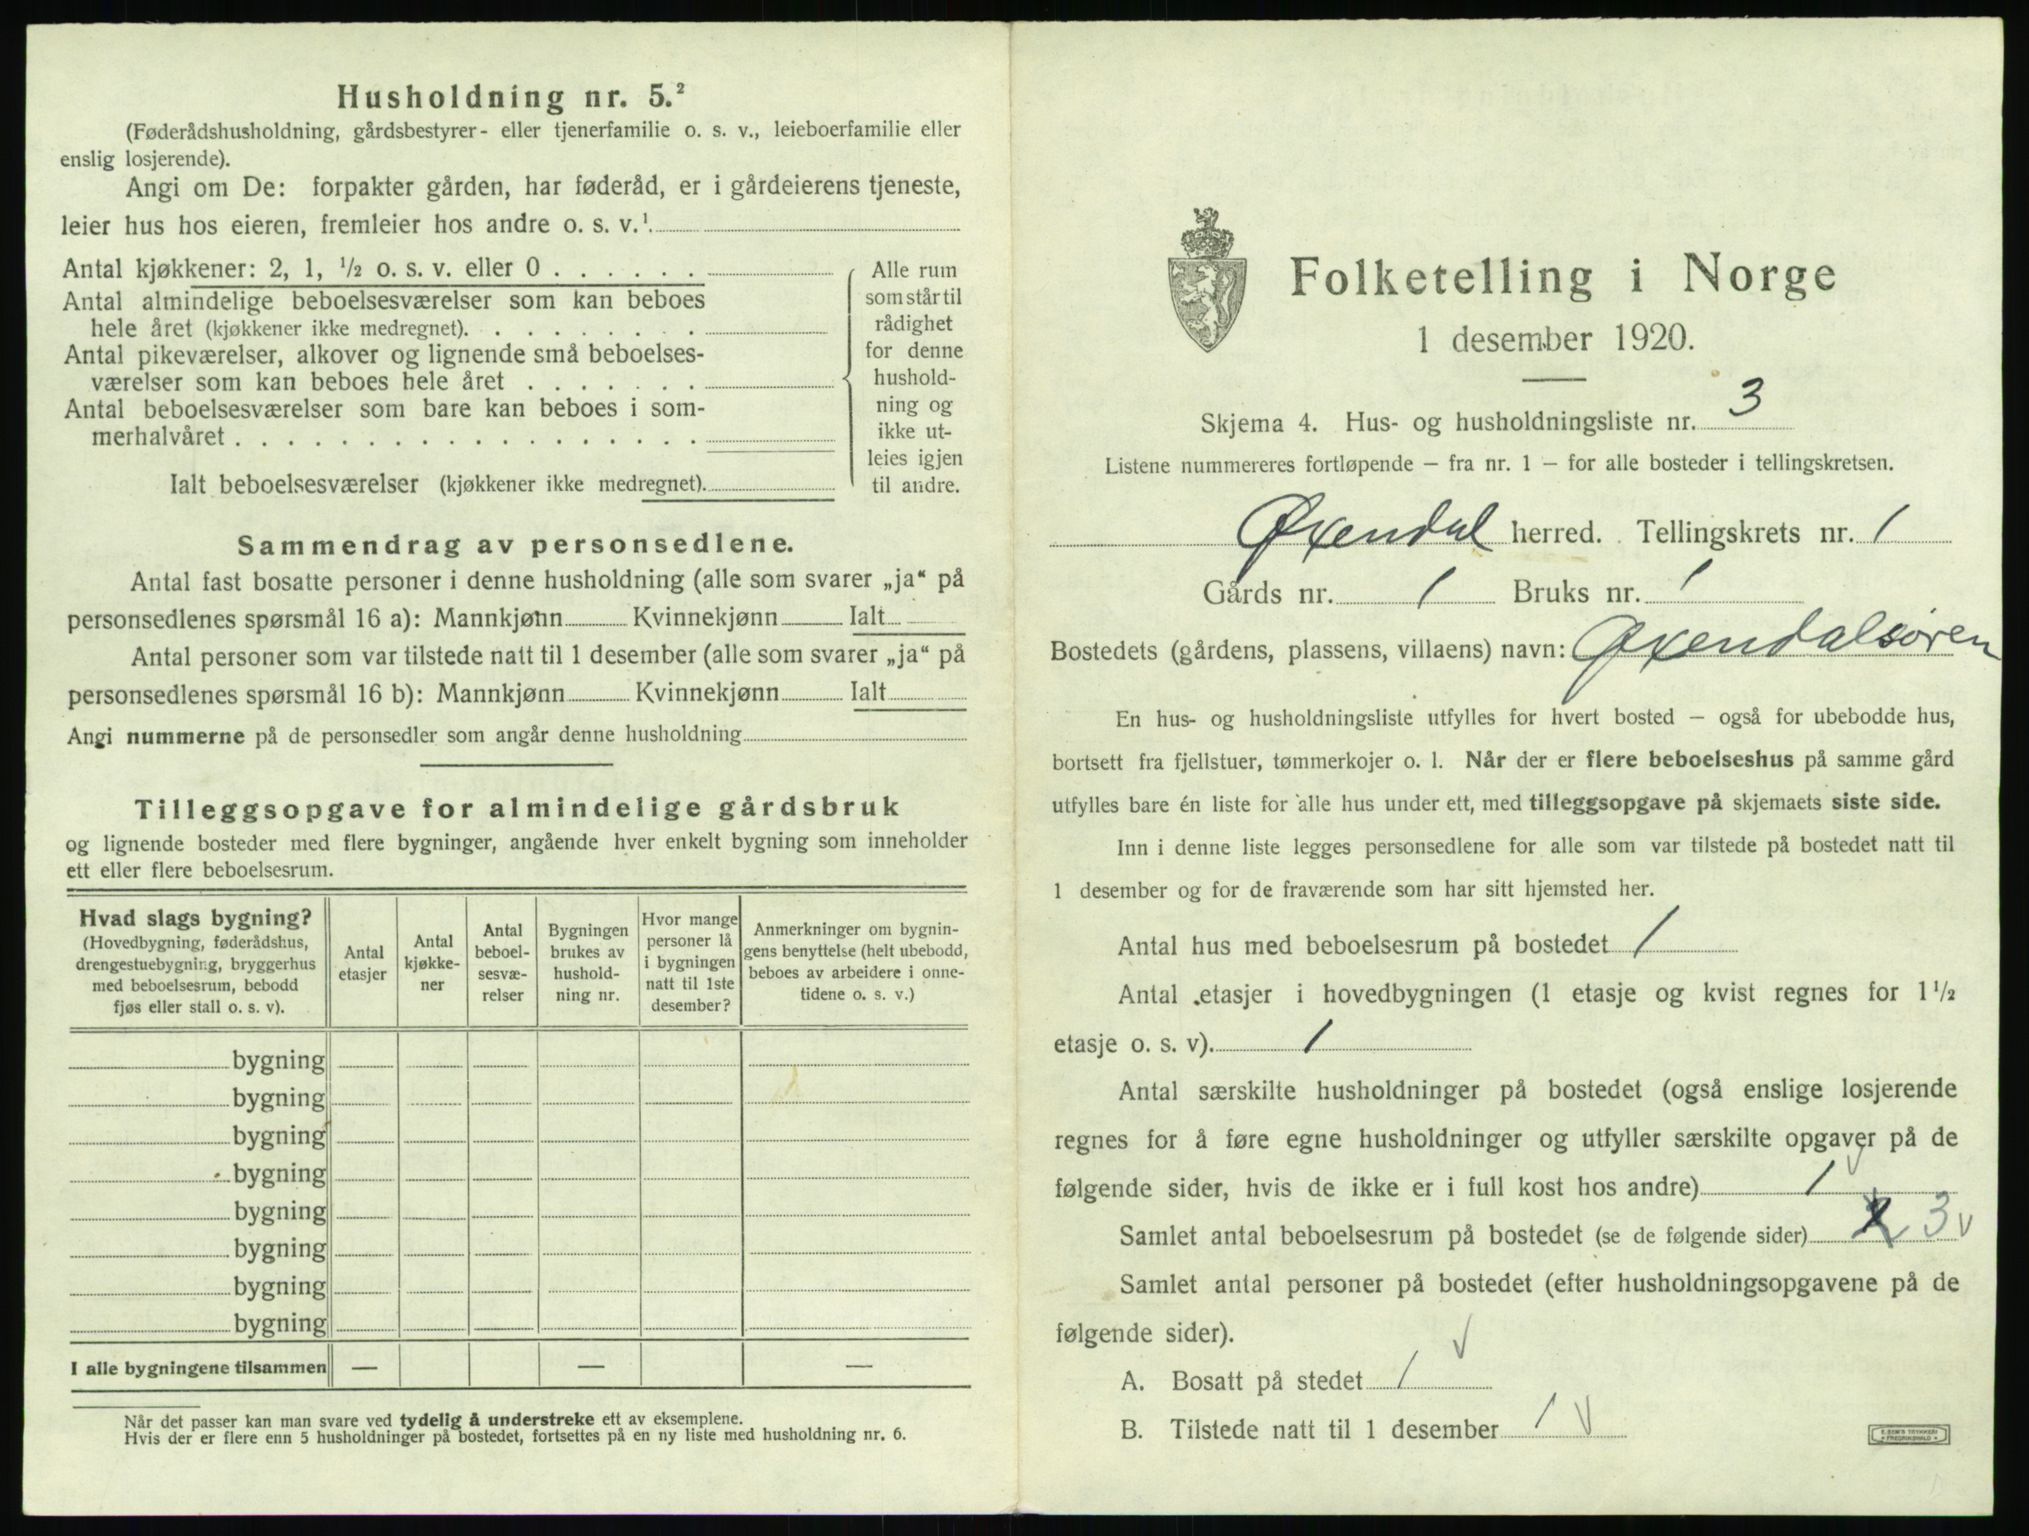 Husholdning nr. 5.²
(Føderådshusholdning, gårdsbestyrer- eller tjenerfamilie o. s. v., leieboerfamilie eller
enslig losjerende).
Angi om De: forpakter gården, har føderåd, er i gårdeierens tjeneste,
leier hus hos eieren, fremleier hos andre o. s. v.¹
Antal kjøkkener: 2, 1, ½ o. s. v. eller 0 . . . . . .
Antal almindelige beboelsesværelser som kan beboes
hele året (kjøkkener ikke medregnet). . . . . . . . .
Antal pikeværelser, alkover og lignende små beboelses-
værelser som kan beboes hele året . . . . . . .
Antal beboelsesværelser som bare kan beboes i som-
merhalvåret . . . . . . . . . . . . . . . . . .
Ialt beboelsesværelser (kjøkkener ikke medregnet).
Alle rum
som står til
rådighet
for denne
hushold-
ning og
ikke ut-
leies igjen
til andre.
Sammendrag av personsedlene.
Antal fast bosatte personer i denne husholdning (alle som svarer „ja“ på
personsedlenes spørsmål 16 a): Mannkjønn Kvinnekjønn Ialt
Antal personer som var tilstede natt til 1 desember (alle som svarer „ja“ på
personsedlenes spørsmål 16 b): Mannkjønn Kvinnekjønn Ialt
Angi nummerne på de personsedler som angår denne husholdning
Tilleggsopgave for almindelige gårdsbruk
og lignende bosteder med flere bygninger, angående hver enkelt bygning som inneholder
ett eller flere beboelsesrum.
Hvad slags bygning?
(Hovedbygning, føderådshus,
drengestuebygning, bryggerhus
med beboelsesrum, bebodd
fjøs eller stall o. s. v).
Antal
etasjer
Antal
kjøkke-
ner
Antal
beboel-
sesvæ-
relser
Bygningen
brukes av
hushold-
ning nr.
Hvor mange
personer lå
i bygningen
natt til 1ste
desember?
Anmerkninger om bygnin-
gens benyttelse (helt ubebodd,
beboes av arbeidere i onne-
tidene o. s. v.)
bygning
bygning
bygning
bygning
bygning
bygning
bygning
bygning
I alle bygningene tilsammen — — —
Når det passer kan man svare ved tydelig å understreke ett av eksemplene.
Hvis der er flere enn 5 husholdninger på bostedet, fortsettes på en ny liste med husholdning nr. 6.
Folketelling i Norge
1 desember 1920.
Skjema 4. Hus- og husholdningsliste nr. 3
Listene nummereres fortløpende – fra nr. 1 – for alle bosteder i tellingskretsen.
Øxendal herred. Tellingskrets nr. 1
Gårds nr. 1 Bruks nr. 1
Bostedets (gårdens, plassens, villaens) navn: Øxendalsøren
En hus- og husholdningsliste utfylles for hvert bosted – også for ubebodde hus,
bortsett fra fjellstuer, tømmerkojer o. l. Når der er flere beboelseshus på samme gård
utfylles bare én liste for alle hus under ett, med tilleggsopgave på skjemaets siste side.
Inn i denne liste legges personsedlene for alle som var tilstede på bostedet natt til
1 desember og for de fraværende som har sitt hjemsted her.
Antal hus med beboelsesrum på bostedet 1
Antal etasjer i hovedbygningen (1 etasje og kvist regnes for 1½
etasje o. s. v). 1
Antal særskilte husholdninger på bostedet (også enslige losjerende
regnes for å føre egne husholdninger og utfyller særskilte opgaver på de
følgende sider, hvis de ikke er i full kost hos andre) 1 v
Samlet antal beboelsesrum på bostedet (se de følgende sider) 3 v
Samlet antal personer på bostedet (efter husholdningsopgavene på de
følgende sider).
A. Bosatt på stedet 1 v
B. Tilstede natt til 1 desember 1 v
E. SEM'S TRYKKERI
FREDRIKSHALD